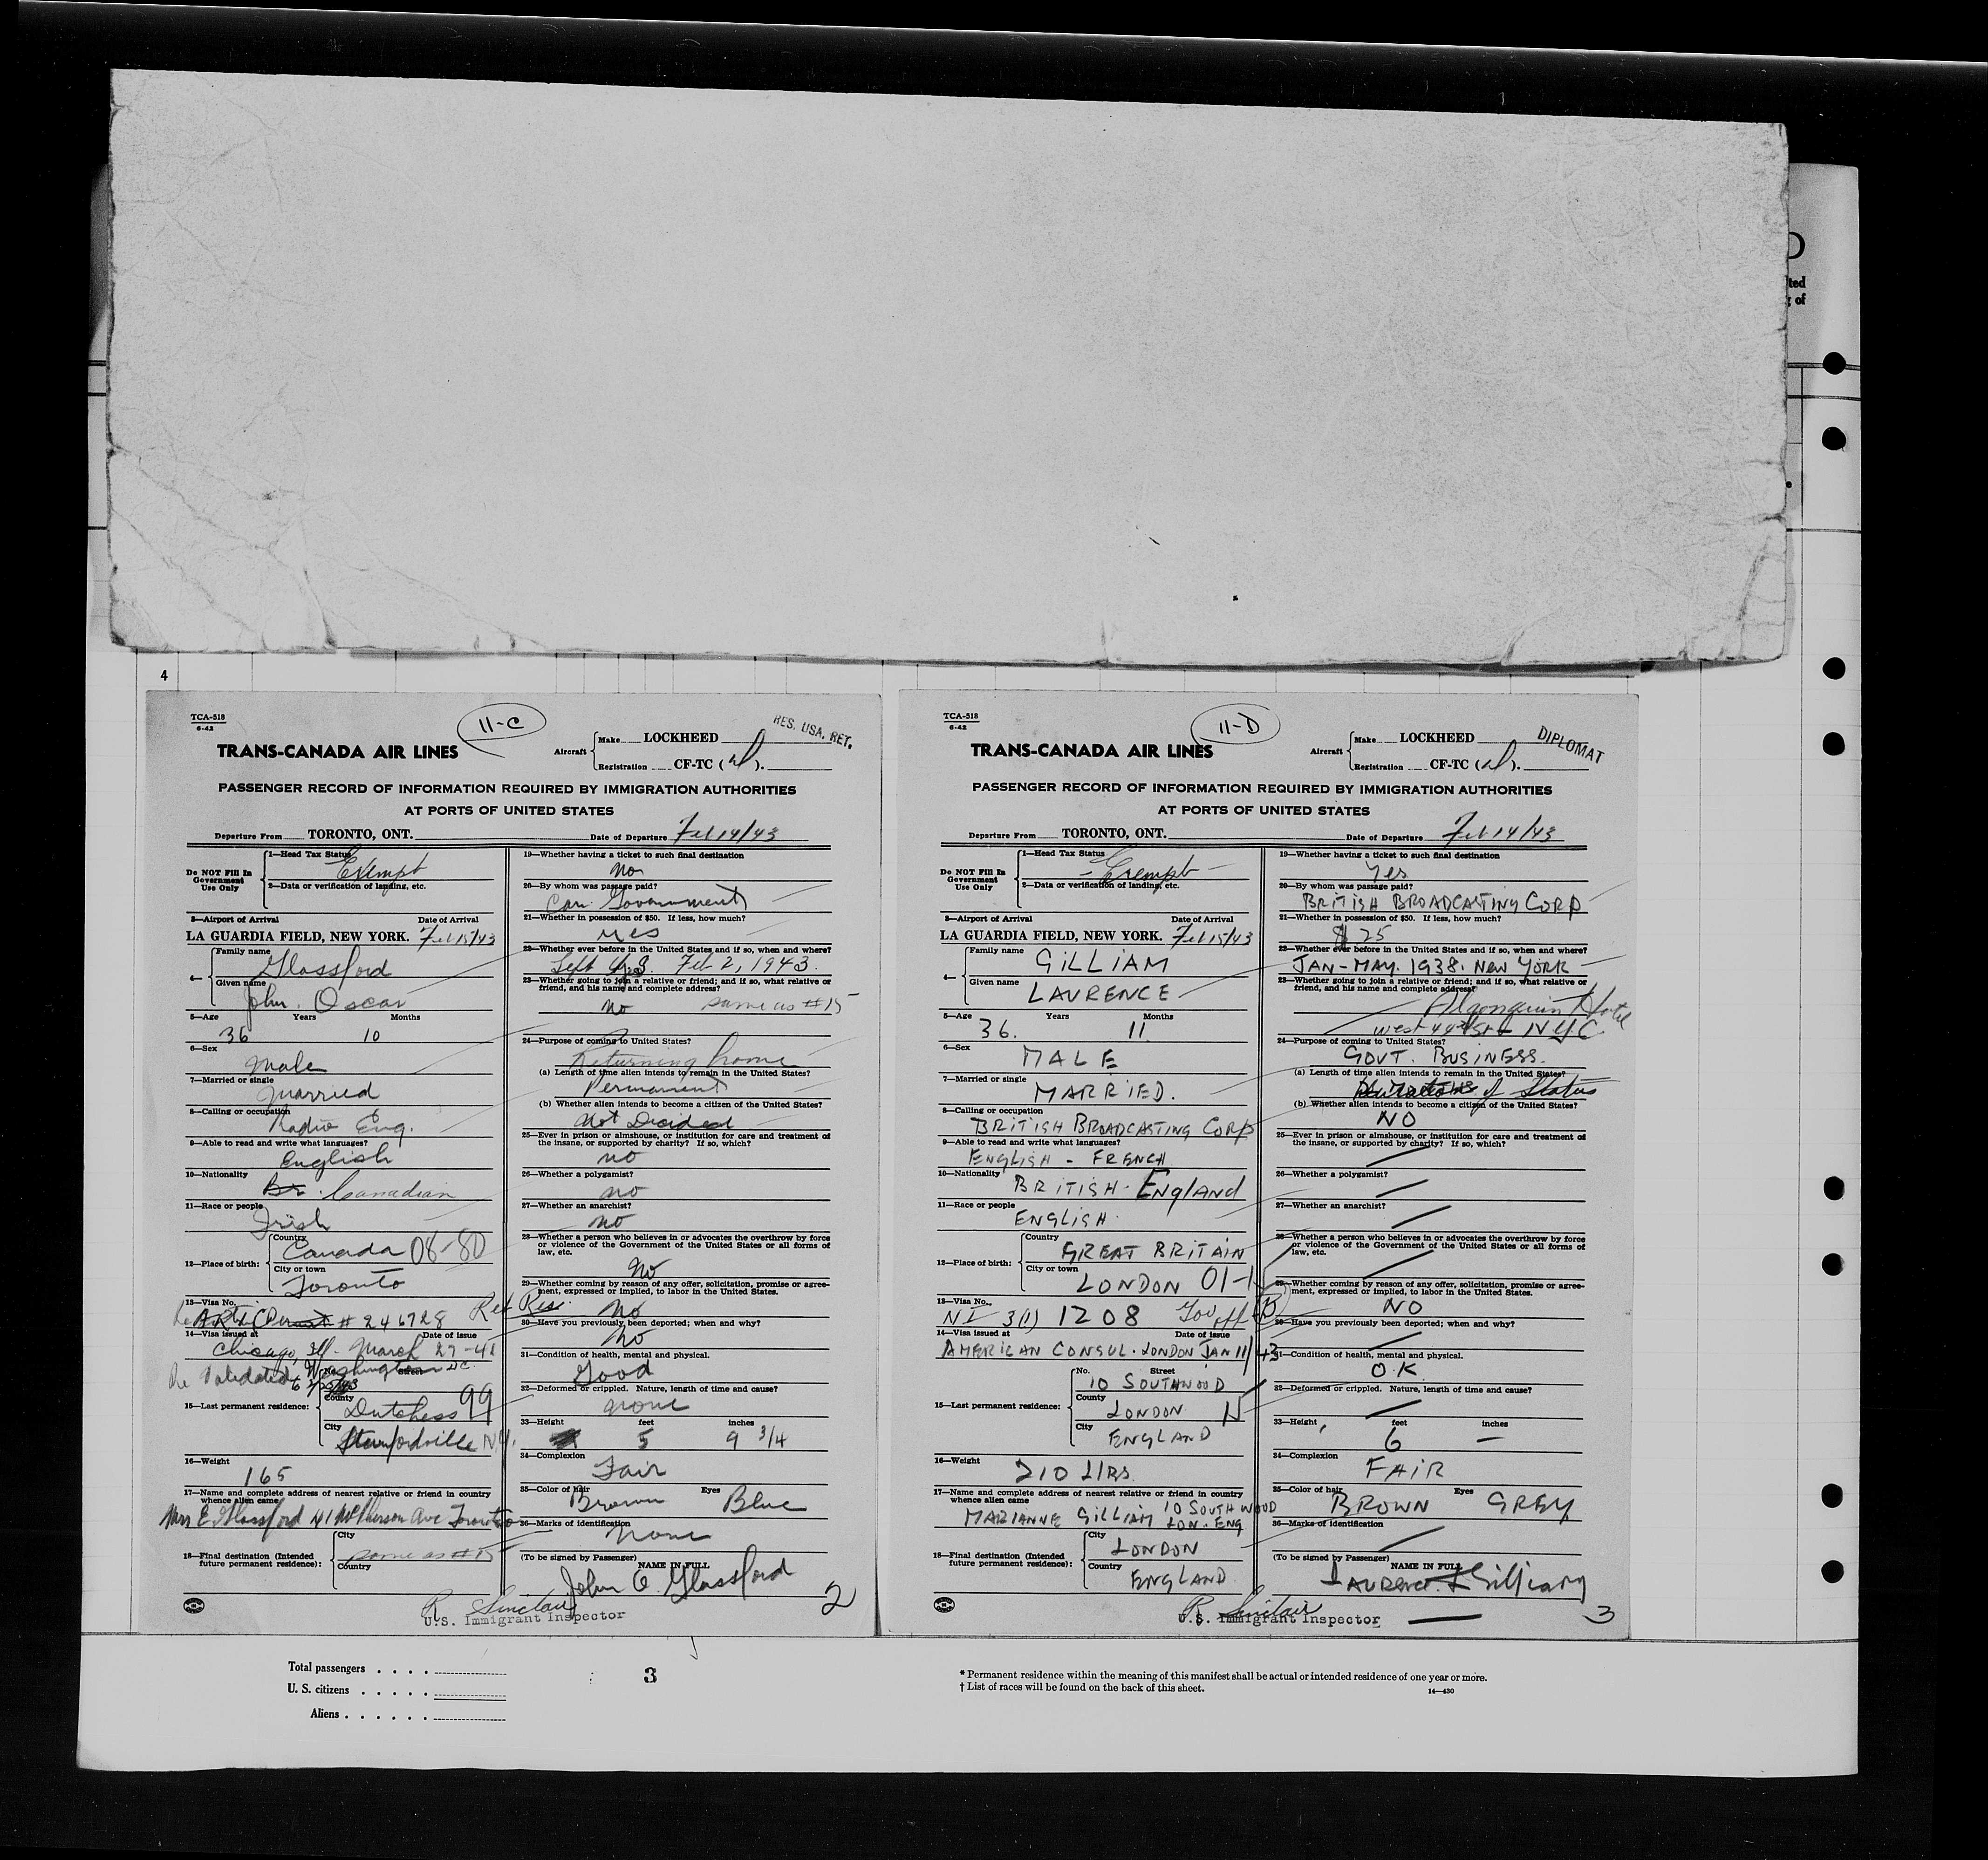 D
ted
of
4
TCA-518
6-42
11-C
RES. USA. RET.
TRANS-CANADA AIR LINES
Aircraft
Make LOCKHEED
Registration CF-TC ( ).
PASSENGER RECORD OF INFORMATION REQUIRED BY IMMIGRATION AUTHORITIES
AT PORTS OF UNITED STATES
Departure From TORONTO, ONT. Date of Departure Feb 14/43
Do NOT Fill In Government Use Only
1—Head Tax Status
Exempt
2—Data or verification of landing, etc.
3—Airport of Arrival Date of Arrival
LA GUARDIA FIELD, NEW YORK. Feb 15/43
4—
Family name
Glassford
Given name
John. Oscar
5—Age Years Months
36 10
6—Sex
Male
7—Married or single
Married
8—Calling or occupation
Radio Eng.
9—Able to read and write what languages?
English
10—Nationality
Br. Canadian
11—Race or people
Irish
12—Place of birth:
Country
Canada 08-80
City or town
Toronto
13—Visa No.
# 246728 Ret Res.
14—Visa issued at Date of issue
Chicago, Ill. March 27-41
Re Validated Washington DC.
No. Street
15—Last permanent residence:
County
Dutchess 99
City
Stanfordville N.Y.
16—Weight
165
17—Name and complete address of nearest relative or friend in country
whence alien came
Mrs E. Glassford 41 McPherson Ave Toronto
18—Final destination (Intended
future permanent residence):
City
same as #15
Country
19—Whether having a ticket to such final destination
No
20—By whom was passage paid?
Can. Government
21—Whether in possession of $50. If less, how much?
yes
22—Whether ever before in the United States and if so, when and where?
Left U.S. Feb 2, 1943.
23—Whether going to join a relative or friend; and if so, what relative or
friend, and his name and complete address?
No same as #15
24—Purpose of coming to United States?
Returning home
(a) Length of time alien intends to remain in the United States?
Permanent
(b) Whether alien intends to become a citizen of the United States?
Not Decided
25—Ever in prison or almshouse, or institution for care and treatment of
the insane, or supported by charity? If so, which?
no
26—Whether a polygamist?
no
27—Whether an anarchist?
no
28—Whether a person who believes in or advocates the overthrow by force
or violence of the Government of the United States or all forms of
law, etc.
No
29—Whether coming by reason of any offer, solicitation, promise or agree-
ment, expressed or implied, to labor in the United States.
No
30—Have you previously been deported; when and why?
No
31—Condition of health, mental and physical.
Good
32—Deformed or crippled. Nature, length of time and cause?
none
33—Height feet inches
5 9 3/4
34—Complexion
Fair
35—Color of hair Eyes
Brown Blue
36—Marks of identification
none
(To be signed by Passenger)
NAME IN FULL
John O. Glassford
R. Sinclair
U.S. Immigrant Inspector
2
TCA-518
6-42
11-D
DIPLOMAT
TRANS-CANADA AIR LINES
Aircraft
Make LOCKHEED
Registration CF-TC ( ).
PASSENGER RECORD OF INFORMATION REQUIRED BY IMMIGRATION AUTHORITIES
AT PORTS OF UNITED STATES
Departure From TORONTO, ONT. Date of Departure Feb 14/43
Do NOT Fill In Government Use Only
1—Head Tax Status
- Exempt -
2—Data or verification of landing, etc.
3—Airport of Arrival Date of Arrival
LA GUARDIA FIELD, NEW YORK. Feb 15/43
4—
Family name
GILLIAM
Given name
LAURENCE
5—Age Years Months
36. 11.
6—Sex
MALE
7—Married or single
MARRIED.
8—Calling or occupation
BRITISH BROADCASTING CORP
9—Able to read and write what languages?
ENGLISH - FRENCH
10—Nationality
BRITISH. England
11—Race or people
ENGLISH.
12—Place of birth:
Country
GREAT BRITAIN
City or town
LONDON 01-1
13—Visa No.
NI 3(1) 1208 Gov off
14—Visa issued at Date of issue
AMERICAN CONSUL. LONDON JAN 11/43
No. Street
10 SOUTHWOOD
15—Last permanent residence:
County
LONDON N
City
ENGLAND
16—Weight
210 LBS
17—Name and complete address of nearest relative or friend in country
whence alien came 10 SOUTHWOOD
MARIANNE GILLIAM LON. ENG
18—Final destination (Intended
future permanent residence):
City
LONDON
Country
ENGLAND
19—Whether having a ticket to such final destination
Yes
20—By whom was passage paid?
BRITISH BROADCASTING CORP
21—Whether in possession of $50. If less, how much?
$ 25
22—Whether ever before in the United States and if so, when and where?
JAN-MAY. 1938. NEW YORK
23—Whether going to join a relative or friend; and if so, what relative or
friend, and his name and complete address?
Algonquin Hotel
West 44th St NYC.
24—Purpose of coming to United States?
GOVT. BUSINESS.
(a) Length of time alien intends to remain in the United States?
of Status
(b) Whether alien intends to become a citizen of the United States?
NO
25—Ever in prison or almshouse, or institution for care and treatment of
the insane, or supported by charity? If so, which?
26—Whether a polygamist?
27—Whether an anarchist?
28—Whether a person who believes in or advocates the overthrow by force
or violence of the Government of the United States or all forms of
law, etc.
29—Whether coming by reason of any offer, solicitation, promise or agree-
ment, expressed or implied, to labor in the United States.
NO
30—Have you previously been deported; when and why?
31—Condition of health, mental and physical.
O.K
32—Deformed or crippled. Nature, length of time and cause?
33—Height feet inches
6 —
34—Complexion
FAIR
35—Color of hair Eyes
BROWN GREY
36—Marks of identification
(To be signed by Passenger)
NAME IN FULL
Laurence Gilliam
R. Sinclair
U.S. Immigrant Inspector
3
Total passengers . . . .
U. S. citizens . . . . .
Aliens . . . . . .
3
* Permanent residence within the meaning of this manifest shall be actual or intended residence of one year or more.
† List of races will be found on the back of this sheet.
14—430